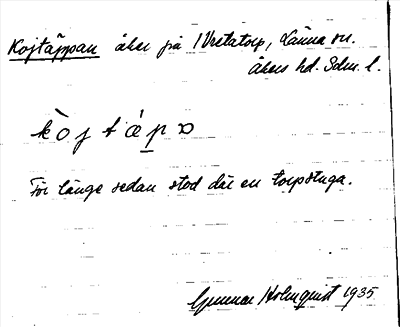 Kojtäppan åker på Vretatorp, Länna sn.
Åkers hd. Sdm. l.
kòjtápɒ
För länge sedan stod där en torpstuga.
Gunnar Holmquist 1935